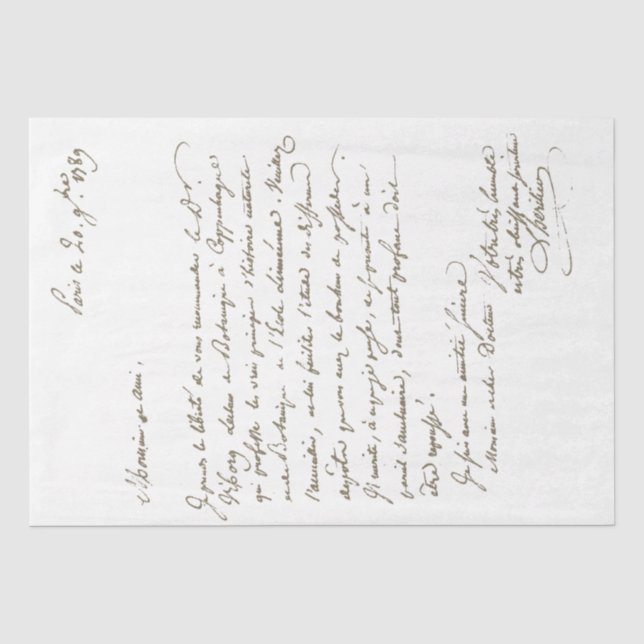 Paris le 20. 9.bre 1789
Monsieur et ami,
Je prends la liberté de vous recommander le Dr.
Viborg de Botanique à Coppenhague
qui professe les vrais principes d'histoire naturelle
et de Botanique de l'Ecole Linnéenne. Veuillez
l'accueillir, et lui faciliter l'étude des différens
que vous avez le bonheur de posséder.
Il mérite, à
pareil Sanctuaire, dont tout profane doit
être repoussé.
Je suis avec une amitié sincère
Monsieur et cher Docteur Votre très humble
et très obéissant serviteur
L'heritier